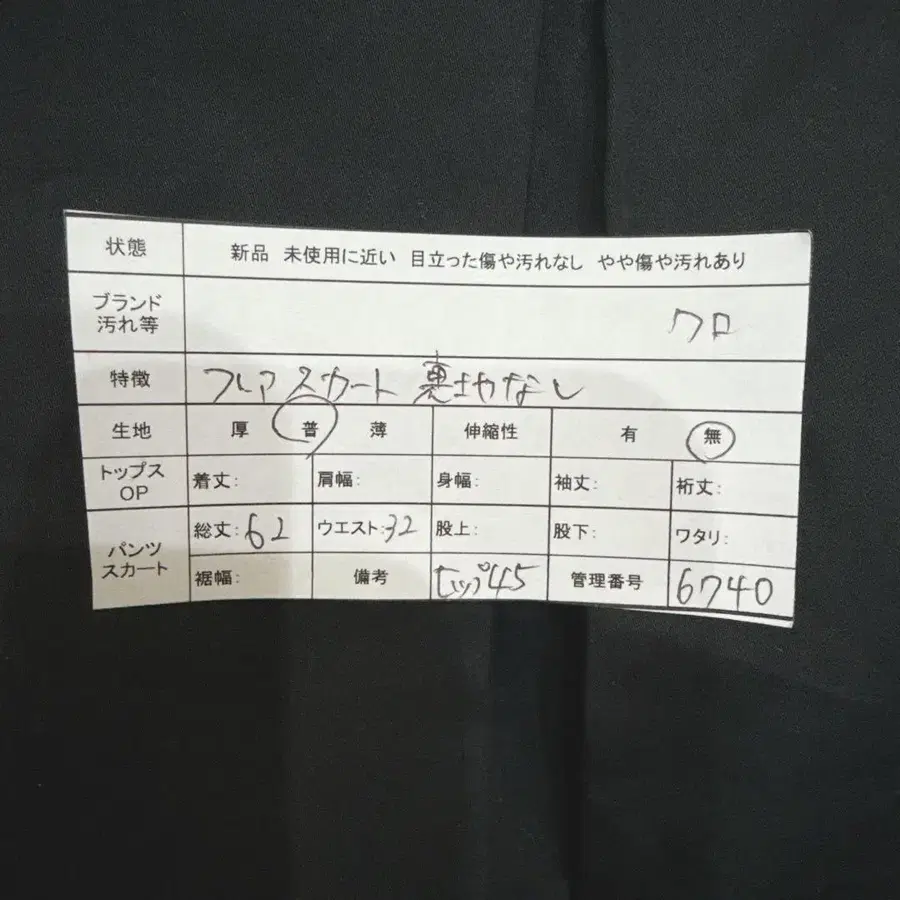 状態 新品 未使用に近い 目立った傷や汚れなし やや傷や汚れあり
ブランド
汚れ等 クロ
特徴 フレアスカート 裏地なし
生地 厚 普 薄 伸縮性 有 無
トップス
OP 着丈: 肩幅: 身幅: 袖丈: 裄丈:
パンツ
スカート 総丈:62 ウエスト:32 股上: 股下: ワタリ:
裾幅: 備考 ヒップ45 管理番号 6740